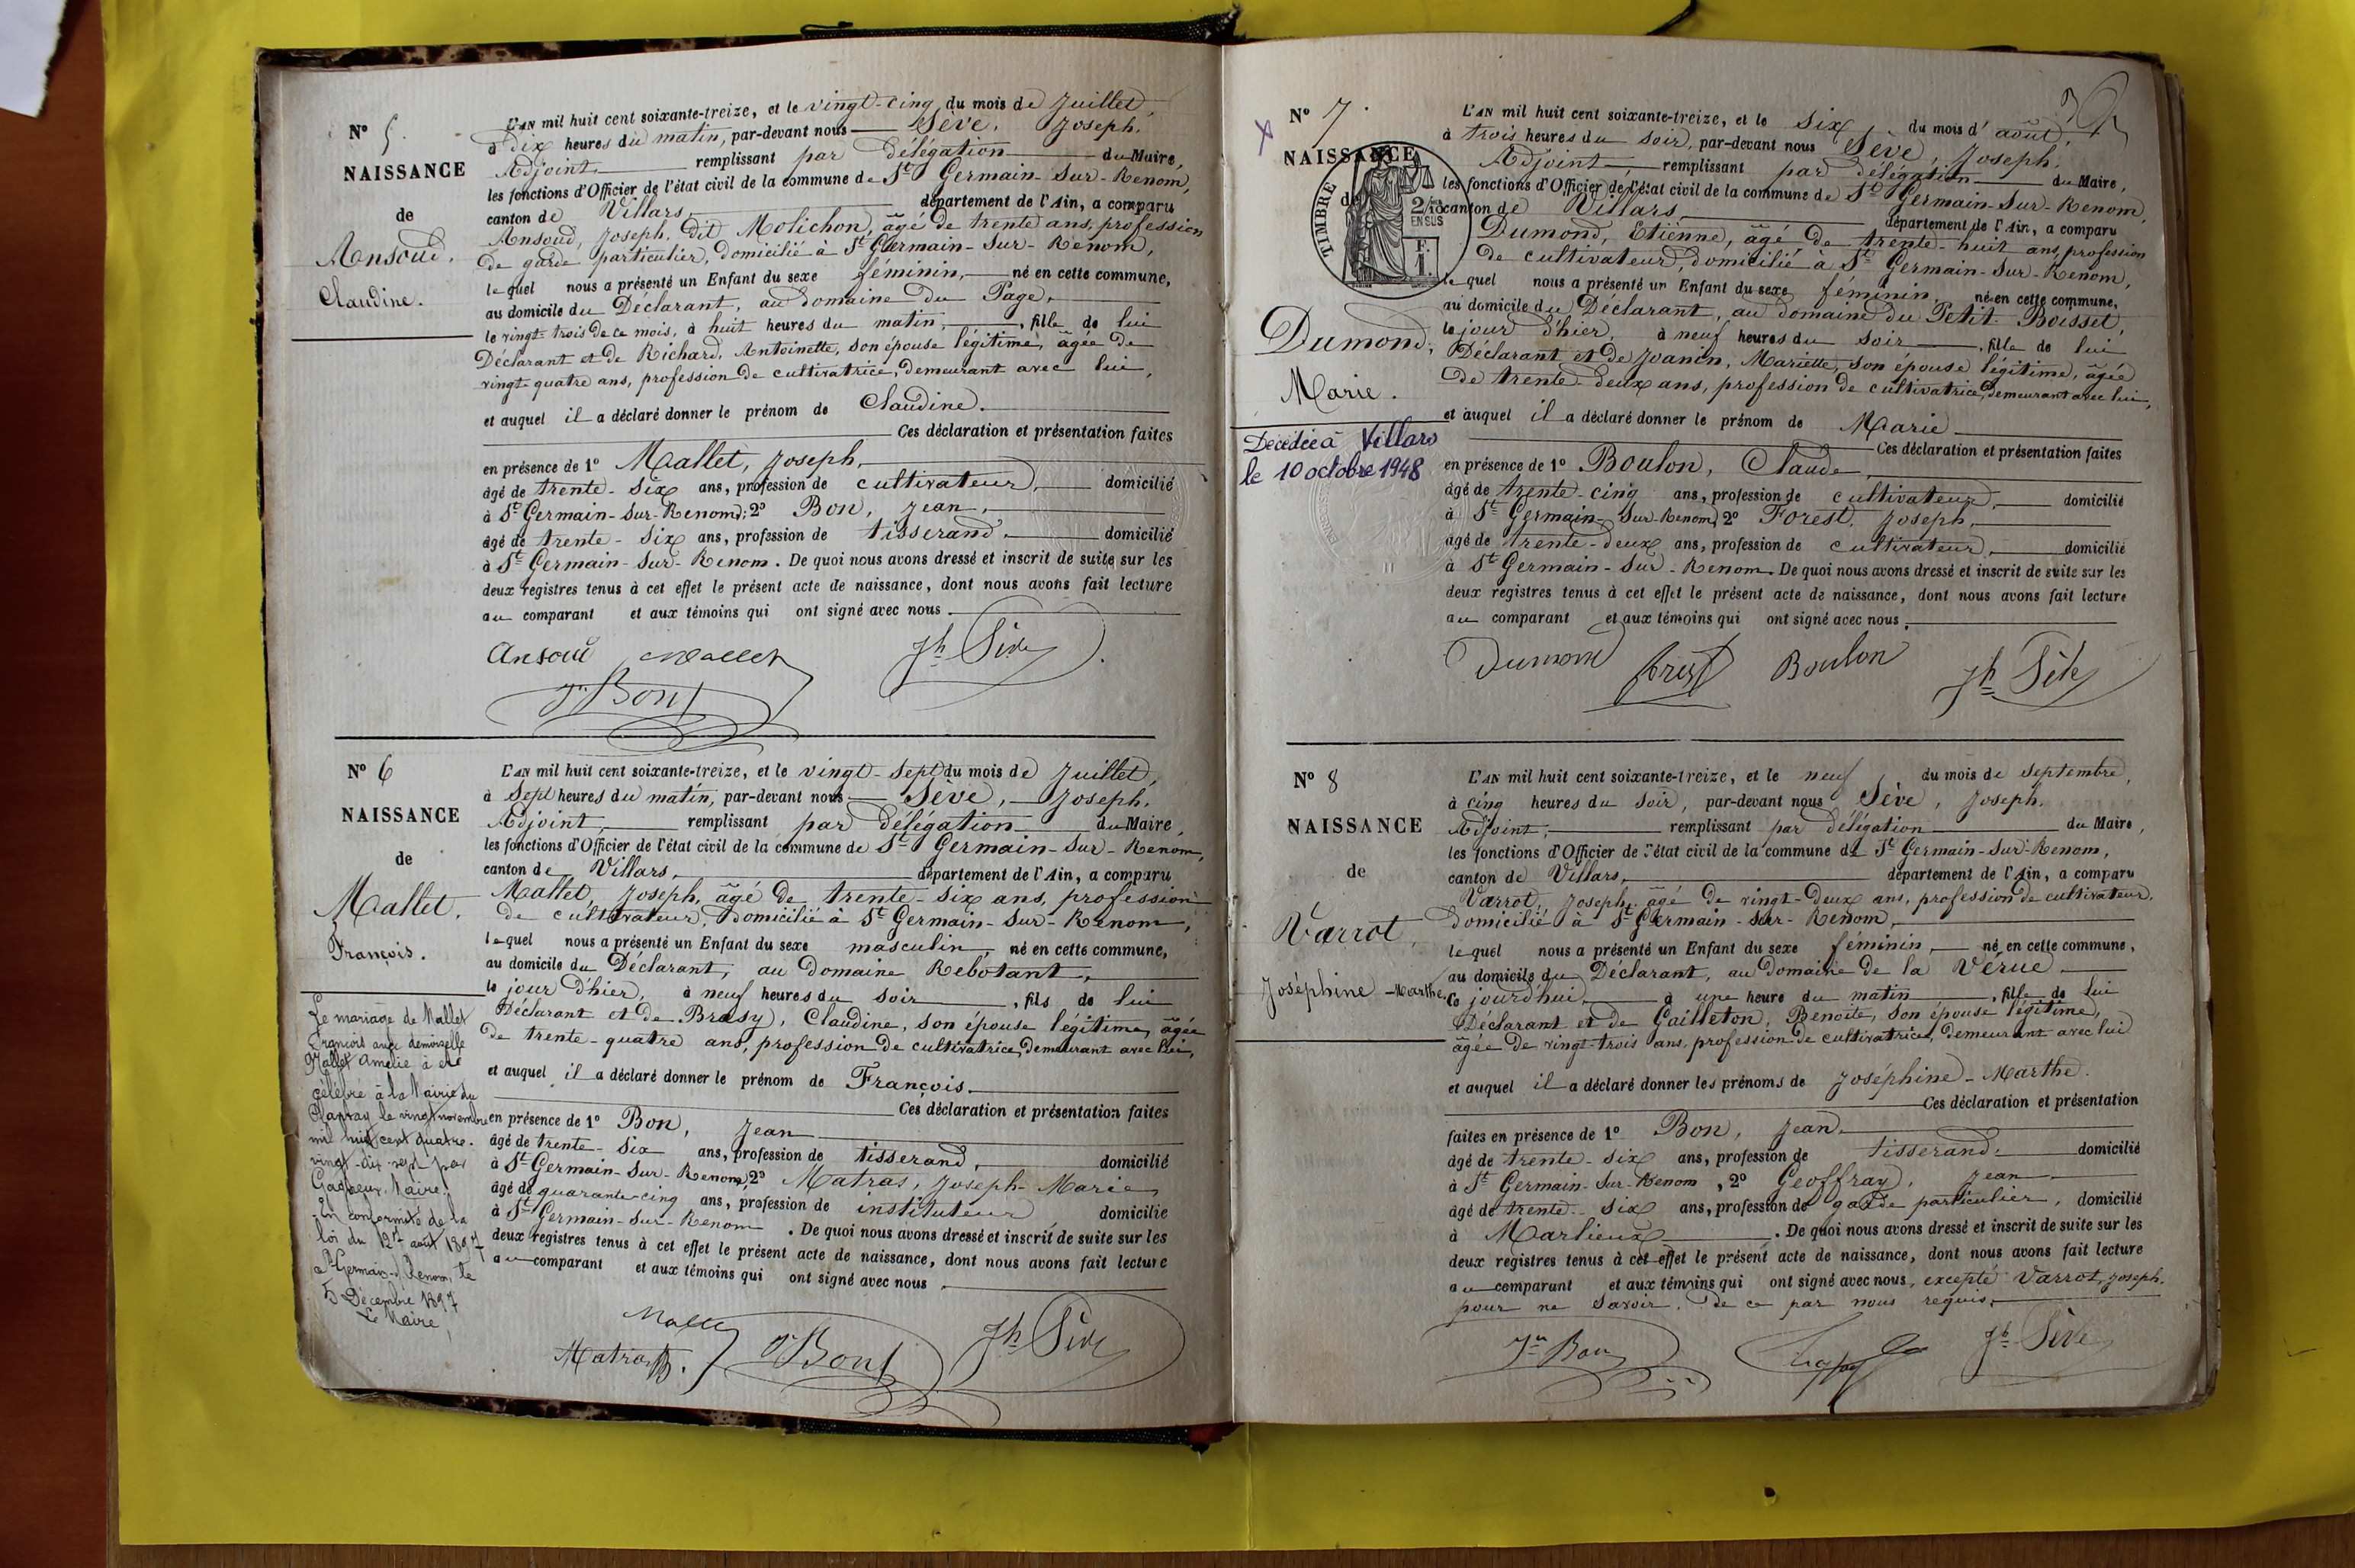 N° 5.
NAISSANCE
de
Ansoud.
Claudine.
L'AN mil huit cent soixante-treize, et le vingt-cinq du mois de Juillet,
à dix heures du matin, par-devant nous Sève, Joseph,
Adjoint remplissant par délégation du Maire,
les fonctions d'Officier de l'état civil de la commune de St Germain-Sur-Renom,
canton de Villars, département de l'Ain, a comparu
Ansoud, Joseph, dit Molichon, âgé de trente ans, profession
de garde particulier, domicilié à St Germain-Sur-Renom,
lequel nous a présenté un Enfant du sexe féminin, né en cette commune,
au domicile du Déclarant, au domaine du Page,
le vingt-trois de ce mois, à huit heures du matin, fille de lui
Déclarant et de Richard, Antoinette, son épouse légitime, âgée de
vingt-quatre ans, profession de cultivatrice, demeurant avec lui,
et auquel il a déclaré donner le prénom de Claudine.
Ces déclaration et présentation faites
en présence de 1° Mallet, Joseph,
âgé de trente-six ans, profession de cultivateur, domicilié
à St Germain-Sur-Renom; 2° Bon, Jean,
âgé de trente-six ans, profession de tisserand, domicilié
à St Germain-Sur-Renom. De quoi nous avons dressé et inscrit de suite sur les
deux registres tenus à cet effet le présent acte de naissance, dont nous avons fait lecture
au comparant et aux témoins qui ont signé avec nous.
Ansoud Mallet Jh Sève
Jn Bon
N° 6
NAISSANCE
de
Mallet.
François.
Le mariage de Mallet
François avec demoiselle
Mallet Amélie à été
célébré à la Mairie du
Plantay le vingt novembre
mil huit cent quatre-
vingt-dix-sept par
Maire.
En conformité de la
loi du août 1897
St Germain-s-Renom, le
5 Décembre 1897
Le Maire,
L'AN mil huit cent soixante-treize, et le vingt-Sept du mois de Juillet,
à Sept heures du matin, par-devant nous Sève, Joseph,
Adjoint, remplissant par délégation du Maire,
les fonctions d'Officier de l'état civil de la commune de St Germain-Sur-Renom,
canton de Villars, département de l'Ain, a comparu
Mallet, Joseph, âgé de trente-six ans, profession
de cultivateur, domicilié à St Germain-Sur-Renom,
lequel nous a présenté un Enfant du sexe masculin, né en cette commune,
au domicile du Déclarant, au domaine Rebotant,
le jour d'hier, à neuf heures du soir, fils de lui
Déclarant et de Brasy, Claudine, son épouse légitime, âgée
de trente-quatre ans, profession de cultivatrice, demeurant avec lui,
et auquel il a déclaré donner le prénom de François.
Ces déclaration et présentation faites
en présence de 1° Bon, Jean
âgé de trente-six ans, profession de tisserand, domicilié
à St Germain-Sur-Renom, 2° Matras, Joseph-Marie,
âgé de quarante-cinq ans, profession de instituteur domicilié
à St Germain-Sur-Renom. De quoi nous avons dressé et inscrit de suite sur les
deux registres tenus à cet effet le présent acte de naissance, dont nous avons fait lecture
au comparant et aux témoins qui ont signé avec nous
Mallet
Matras Jn Bon Jh Sève
N° 7.
NAISSANCE
de
TIMBRE
Dumond,
Marie.
Décédée à Villars
le 10 octobre 1948
L'AN mil huit cent soixante-treize, et le six du mois d'août,
à trois heures du soir, par-devant nous Sève, Joseph,
Adjoint, remplissant par délégation du Maire,
les fonctions d'Officier de l'état civil de la commune de St Germain-Sur-Renom,
canton de Villars, département de l'Ain, a comparu
Dumond, Etienne, âgé de trente-huit ans, profession
de cultivateur, domicilié à St Germain-Sur-Renom,
lequel nous a présenté un Enfant du sexe féminin, né en cette commune,
au domicile du Déclarant, au domaine du Petit Boisset,
le jour d'hier, à neuf heures du soir, fille de lui
Déclarant et de Joanin, Mariette, son épouse légitime, âgée
de trente-deux ans, profession de cultivatrice, demeurant avec lui,
et auquel il a déclaré donner le prénom de Marie
Ces déclaration et présentation faites
en présence de 1° Boulon, Claude,
âgé de trente-cinq ans, profession de cultivateur, domicilié
à St Germain-Sur-Renom, 2° Forest, Joseph,
âgé de trente-deux ans, profession de cultivateur, domicilié
à St Germain-Sur-Renom. De quoi nous avons dressé et inscrit de suite sur les
deux registres tenus à cet effet le présent acte de naissance, dont nous avons fait lecture
au comparant et aux témoins qui ont signé avec nous.
Dumond Forest Boulon Jh Sève
N° 8
NAISSANCE
de
Varrot,
Joséphine-Marthe.
L'AN mil huit cent soixante-treize, et le neuf du mois de Septembre,
à cinq heures du soir, par-devant nous Sève, Joseph,
Adjoint, remplissant par délégation du Maire,
les fonctions d'Officier de l'état civil de la commune de St Germain-Sur-Renom,
canton de Villars, département de l'Ain, a comparu
Varrot, Joseph, âgé de vingt-deux ans, profession de cultivateur,
domicilié à St Germain-Sur-Renom,
lequel nous a présenté un Enfant du sexe féminin, né en cette commune,
au domicile du Déclarant, au domaine de la Vérue
Ce jourd'hui, à une heure du matin, fille de lui
Déclarant et de Gailleton, Benoîte, son épouse légitime,
âgée de vingt-trois ans, profession de cultivatrice, demeurant avec lui
et auquel il a déclaré donner les prénoms de Joséphine-Marthe.
Ces déclaration et présentation
faites en présence de 1° Bon, Jean
âgé de trente-six ans, profession de tisserand, domicilié
à St Germain-Sur-Renom, 2° Geoffray, Jean
âgé de trente-six ans, profession de garde particulier, domicilié
à Marlieux. De quoi nous avons dressé et inscrit de suite sur les
deux registres tenus à cet effet le présent acte de naissance, dont nous avons fait lecture
au comparant et aux témoins qui ont signé avec nous, excepté Varrot, Joseph,
pour ne savoir, de ce par nous requis.
Jn Bon Jh Sève